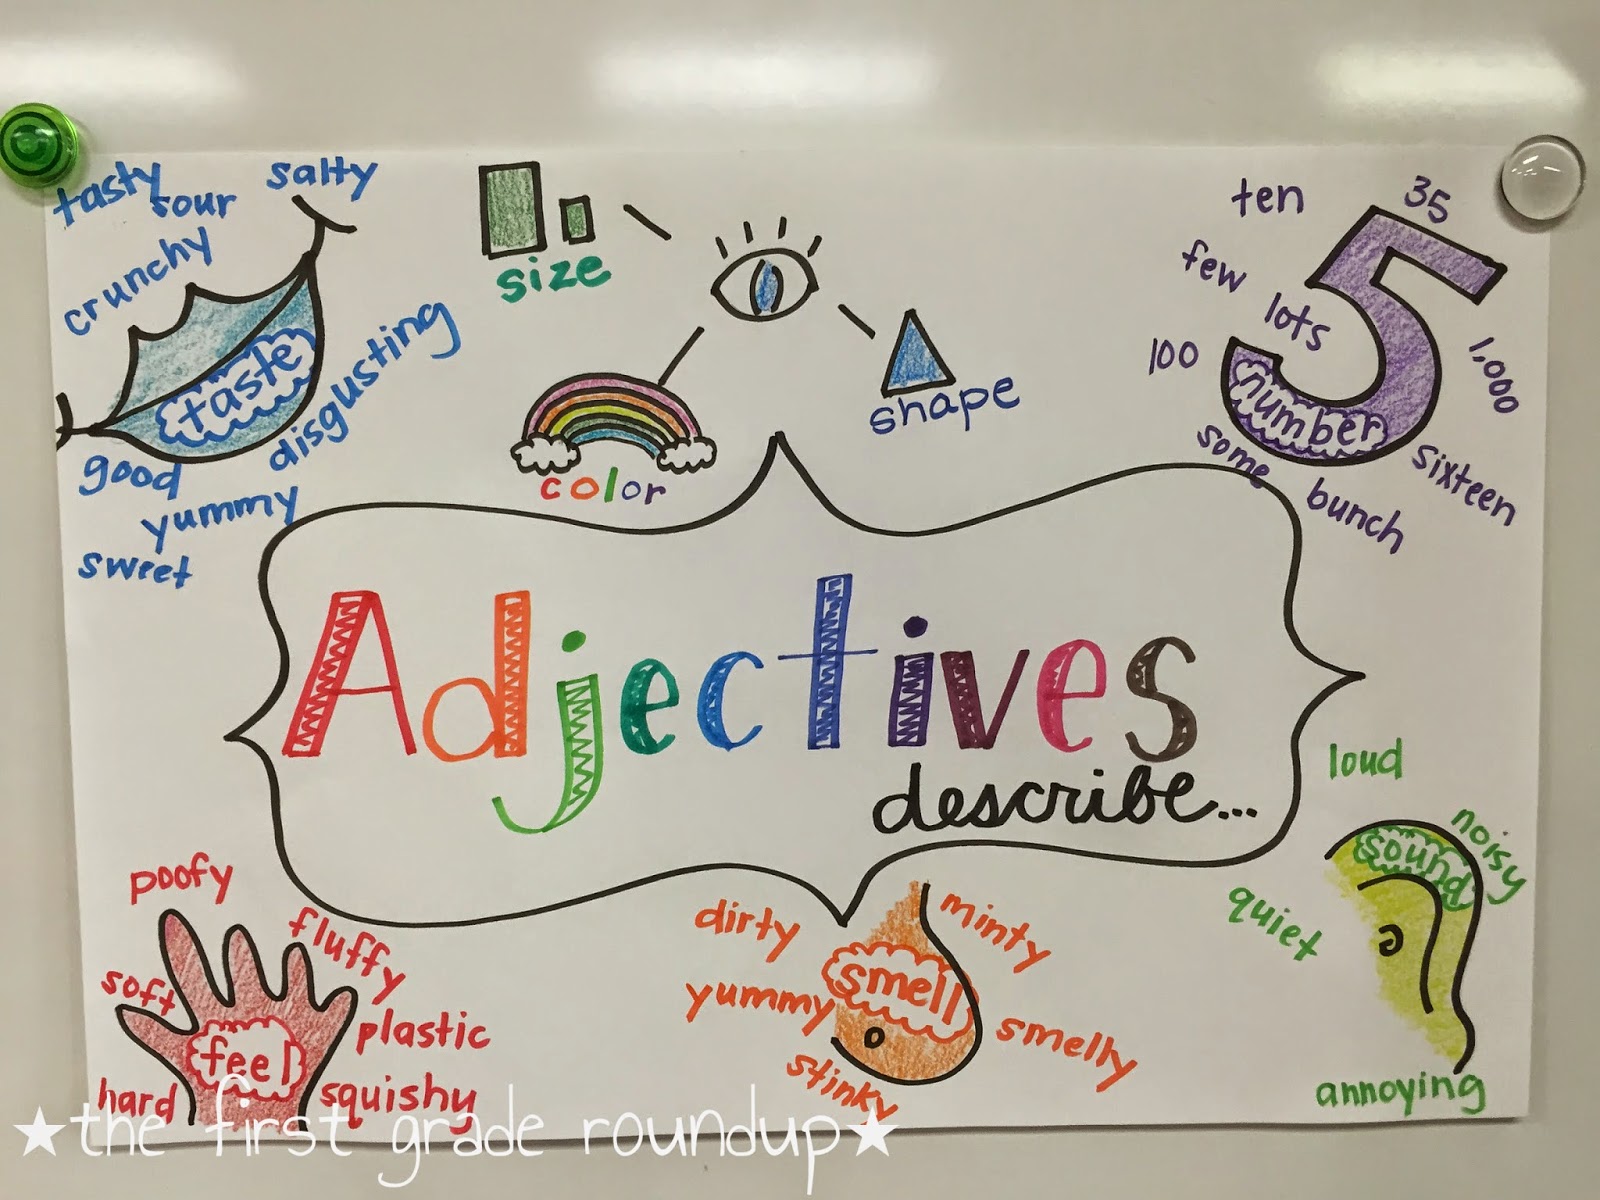 tasty
sour
salty
crunchy
taste
disgusting
good
yummy
sweet
size
color
shape
ten
35
few
lots
100
1,000
number
some
sixteen
bunch
Adjectives
describe...
poofy
fluffy
soft
plastic
feel
hard
squishy
dirty
minty
smell
yummy
smelly
stinky
loud
noisy
sound
quiet
annoying
★the first grade roundup★